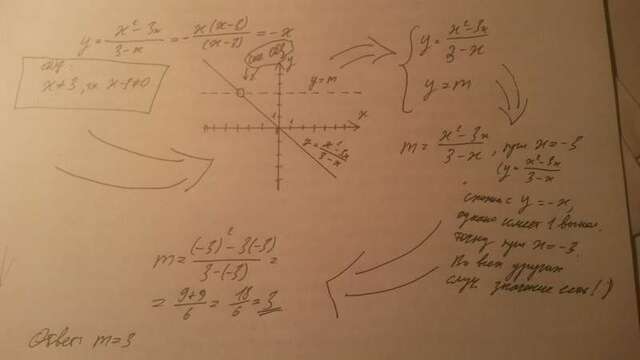 y = (x² - 3x)/(3 - x) = -x(x-3)/(x-3) = -x
x ≠ 3, x-3≠0
y
y=m
x
y = (x² - 3x)/(3 - x)
y = (x² - 3x)/(3 - x)
y = m
m = (x² - 3x)/(3 - x), при x = -3
(y = (x² - 3x)/(3 - x)
с y = -x,
однако имеет 1 выкол.
точку при x = -3.
Во всех других
случ. значение есть!)
m = ((-3)² - 3(-3))/(3-(-3)) =
= (9+9)/6 = 18/6 = 3
Ответ: m=3